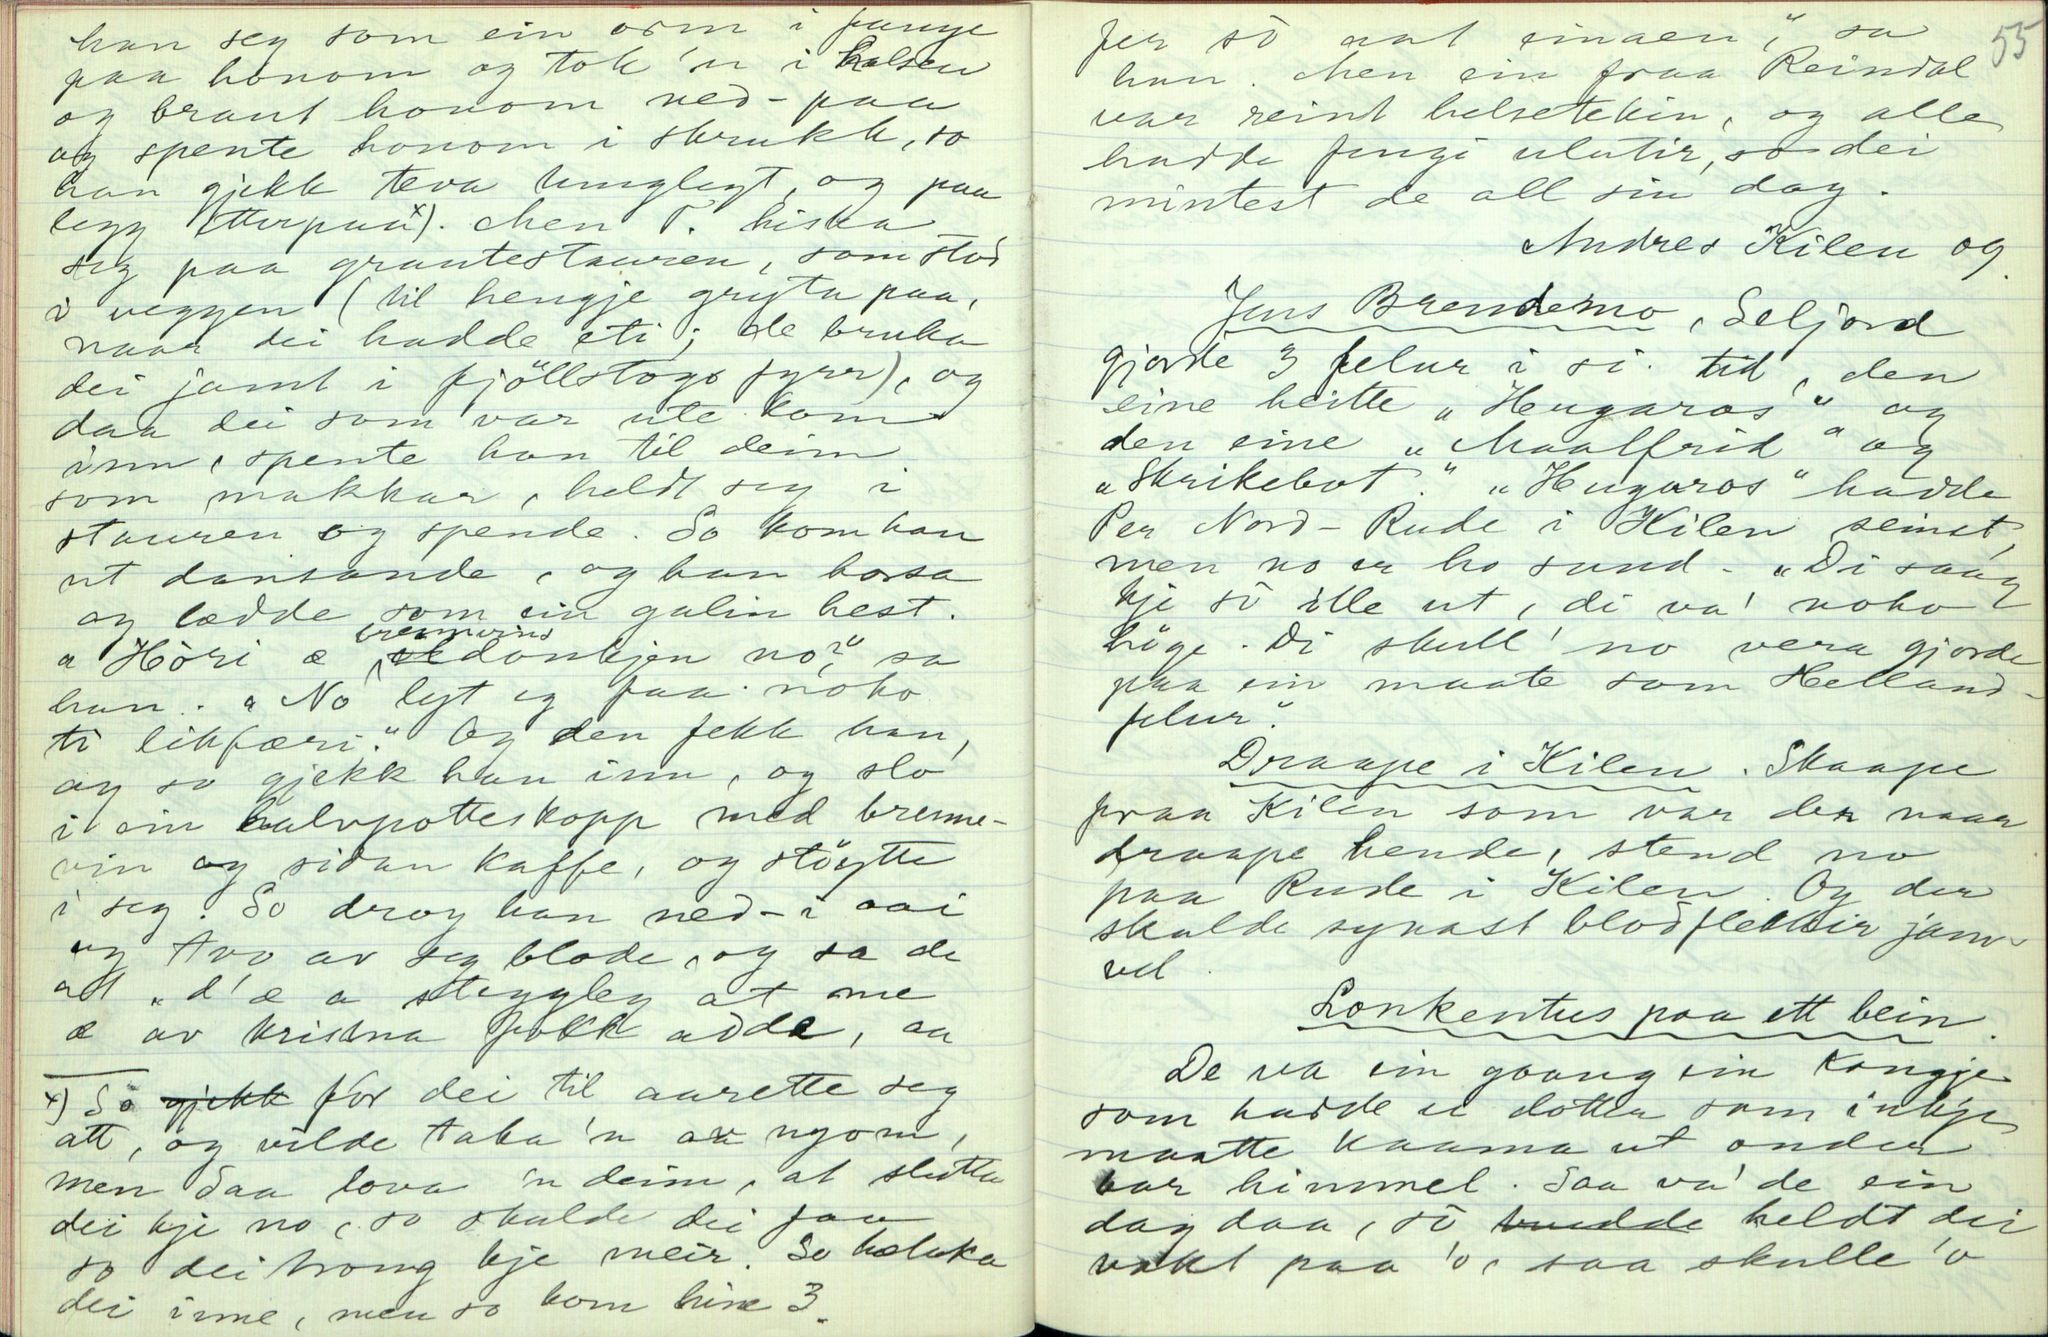 han seg som ein orm i fange
paa honom og tok 'n i halsen
og braut honom ned-paa
og spente honom i skrukk, so
han gjekk teva tunglegt, og paa
legg etterpaa x). Men T. hiska
seg paa grautestauren, som stod
i veggen (til hengje gryta paa,
naar dei hadde eti; de bruka
dei jamt i fjöllstogo fyrr), og
daa dei som var ute kom
inn, spente han til deim
som makkar, heldt seg i
stauren og spende. So kom han
ut dansande, og han kossa
og lædde som ein galin hest.
„Höri æ brennvinsdonkjen no?" sa
han. „No lyt eg faa noko
ti likfæri." Og den fekk han,
og so gjekk han inn, og slo
i ein halvpotteskopp med brenne-
vin og sidan kaffe, og stöytte
i seg. So drog han ned-i aai
og tvo av seg blode, og sa de
at „d'æ a steggleg at me
æ av kristna fokk adde, aa
x) So gjekk for dei til aarette seg
att, og vilde taka 'n av nyom,
men daa lova 'n deim, at slutta
dei kje no, so skulde dei faa
so dei trong kje meir. So
dei inne, men so kom hine 3.
55
fer sö aat einaen," sa
han. Men ein fraa Reindal
var reint helsetekin, og alle
hadde fengi ulutir, so dei
mintest de all sin dag.
Andres Kilen og
Jens Brendemo, Seljord
gjorde 3 felur i si tid, den
eine heitte „Hugaros" og
den eine „Maalfrid" og
„Skrikebot." „Hugaros" hadde
Per Nord-Rude i Kilen seinst,
men no er ho sund. „Di saag
kje sö ille ut, di va' noko
höge. Di skull' no vera gjorde
paa ein maate som Helland-
felur".
Draape i Kilen. Skaape
fraa Kilen som var der naar
draape hende, stend no
paa Rude i Kilen. Og der
skulde synast blodflekkir jam-
vel.
Lonkentus paa ett bein.
De va ein goang ein kongje
som hadde ei dotter som inkje
maatte kaama ut onder
bar himmel. Saa va' de ein
dag daa, sö hadde heldt dei
vakt paa 'o, saa skulle 'o